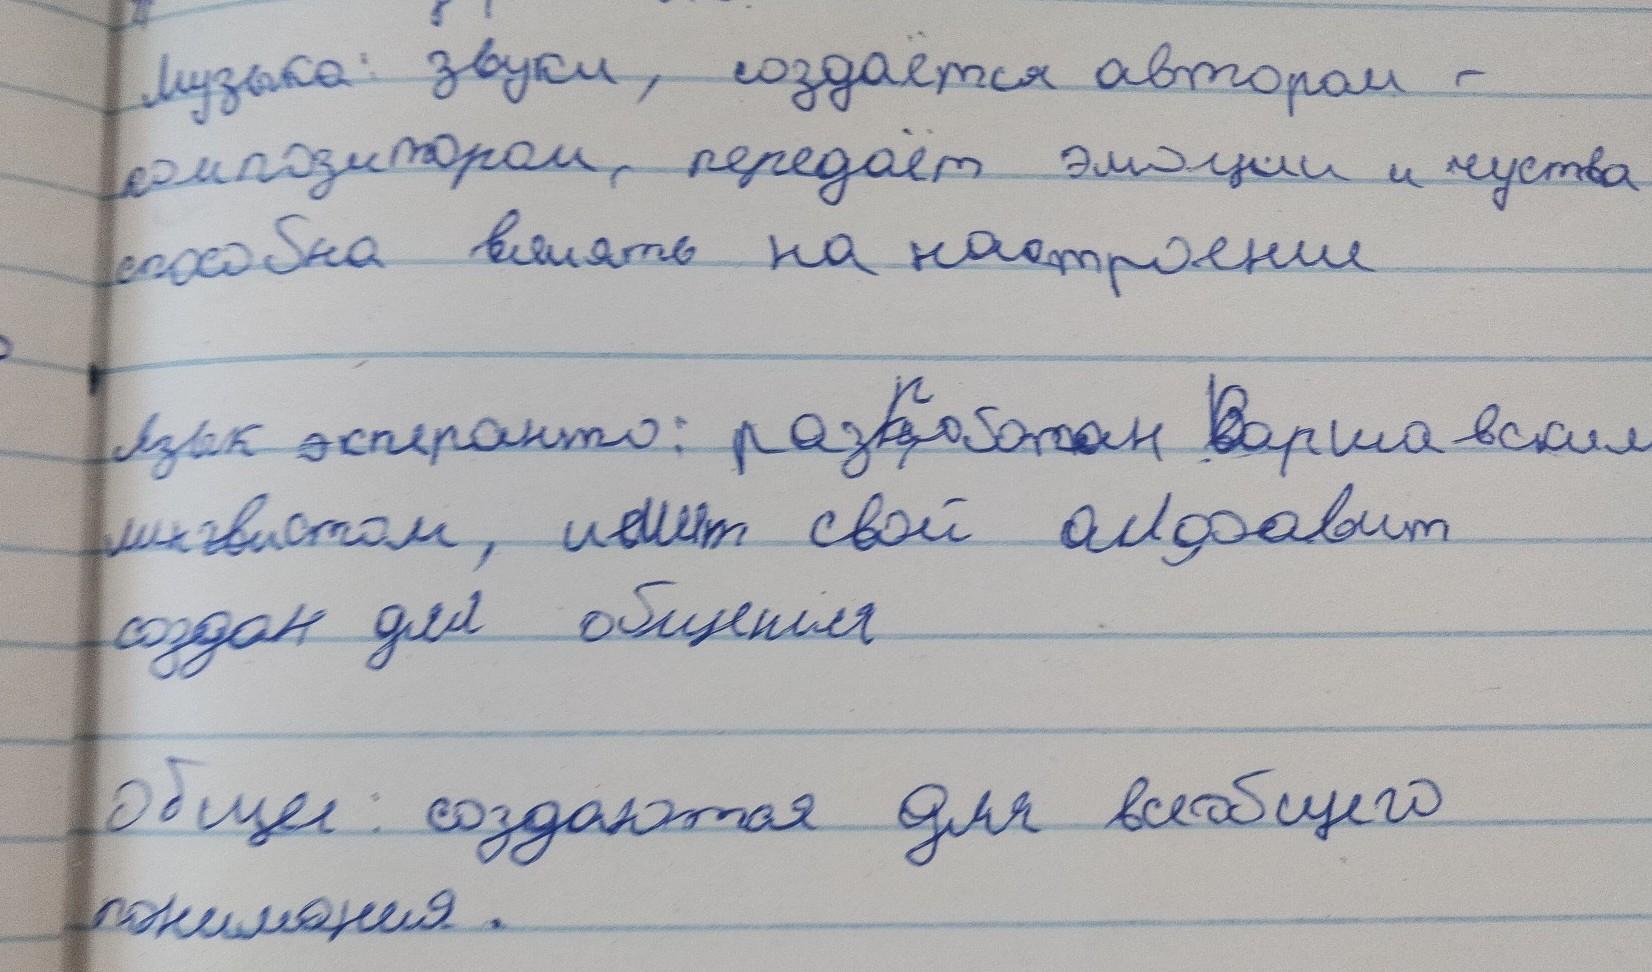 Музыка: звуки, создаётся автором -
композитором, передаёт эмоции и чуства
способна влиять на настроение
Язык эсперанто: разработан Варшавским
лингвистом, имеет свой алфавит
создан для общения
Общее: создаются для всеобщего
понимания.